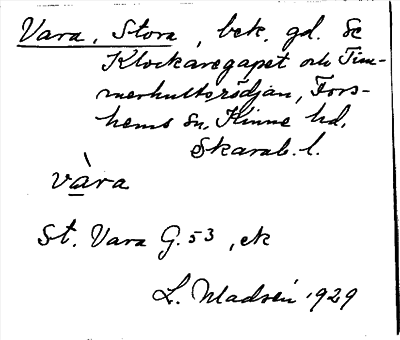 Vara, Stora, bek. gd. Se
Klockaregapet och Tim-
merhultsrödjan, Fors-
hems sn, Kinne hd,
Skarab. l.
vàra
St. Vara G. 53, ek
L. Madsén 1929